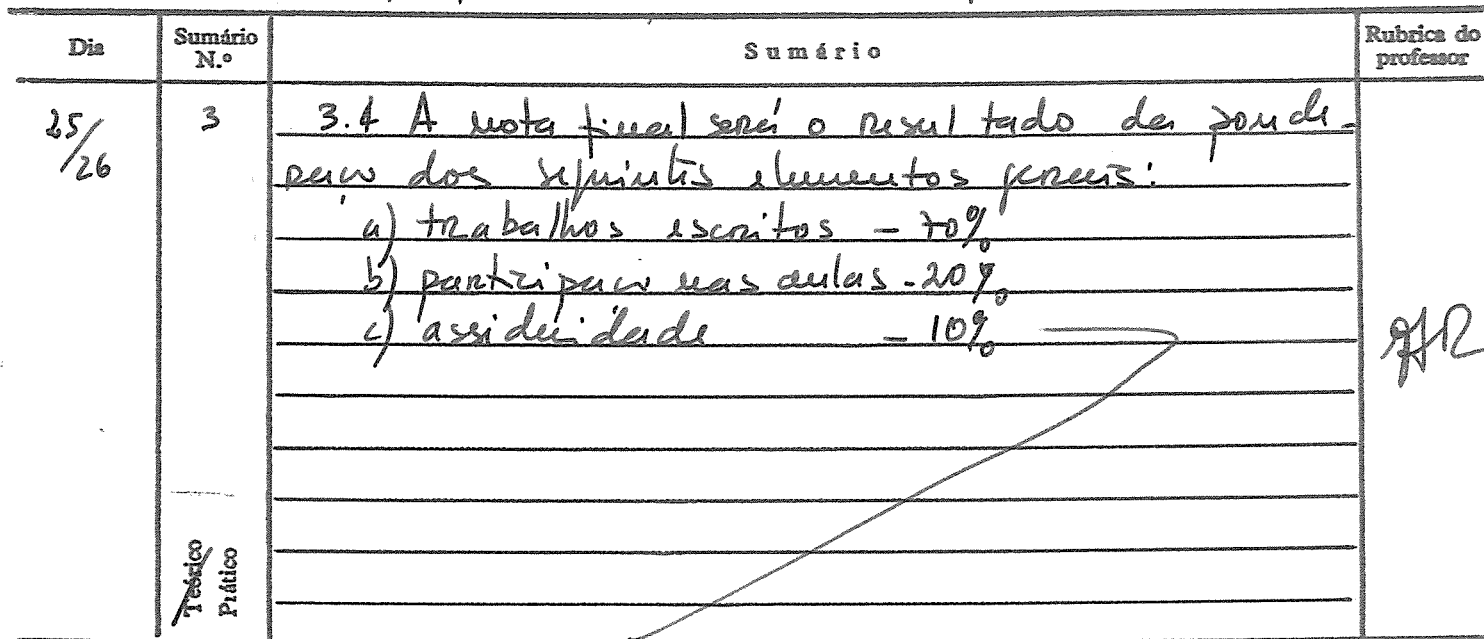 Dia
Sumário
N.º
Sumário
Rubrica do
professor
25/26
3
3.4 A nota final será o resultado da ponde-
ração dos seguintes elementos gerais:
a) trabalhos escritos - 70%
b) participação nas aulas - 20%
c) assiduidade - 10%
Teórico
Prático